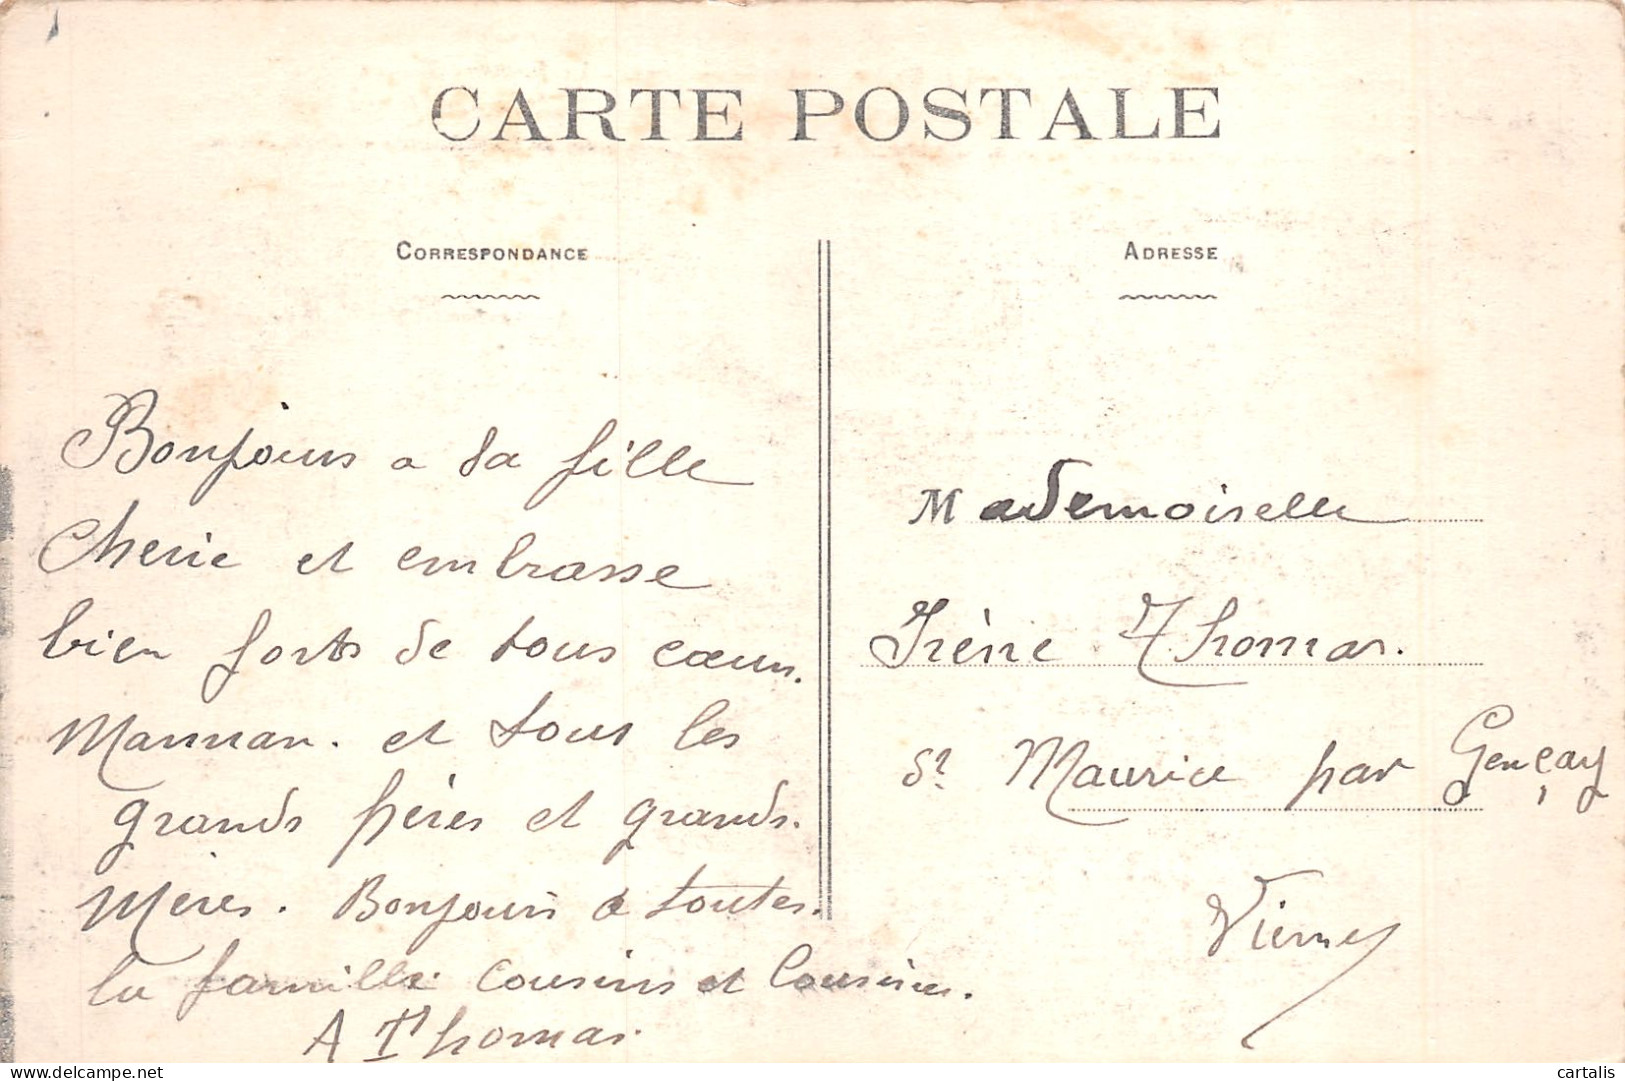 CARTE POSTALE
CORRESPONDANCE
Bonjour a sa fille
Cherie et embrasse
bien forts de tous cœur.
Maman. et tous les
grands pères et grands.
Mères. Bonjours a toutes.
la famille cousins et cousines.
A Thomas.
ADRESSE
Mademoiselle
Irène Thomas.
St Maurice par Gençay
Vienne
cartalis